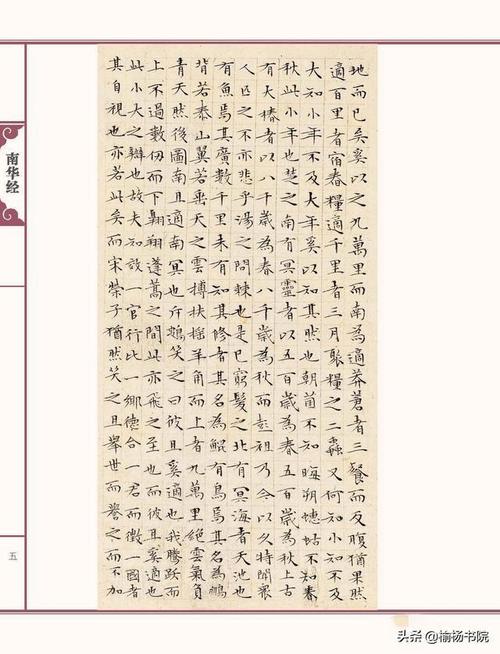 地而已矣奚以之九萬里而南為適莽蒼者三餐而反腹猶果然
適百里者宿舂糧適千里者三月聚糧之二蟲又何知小知不及
大知小年不及大年奚以知其然也朝菌不知晦朔蟪蛄不知春
秋此小年也楚之南有冥靈者以五百歲為春五百歲為秋上古
有大椿者以八千歲為春八千歲為秋而彭祖乃今以久特聞衆
人匹之不亦悲乎湯之問棘也是已窮髮之北有冥海者天池也
有魚焉其廣數千里未有知其修者其名為鯤有鳥焉其名為鵬
背若泰山翼若垂天之雲搏扶搖羊角而上者九萬里絕雲氣負
青天然後圖南且適南冥也斥鴳笑之曰彼且奚適也我騰躍而
上不過數仞而下翱翔蓬蒿之間此亦飛之至也而彼且奚適也
此小大之辯也故夫知效一官行比一鄉德合一君而徵一國者
其自視也亦若此矣而宋榮子猶然笑之且舉世而譽之而不加
南华经
五
头条@榆杨书院